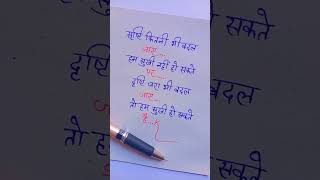 सृष्टि कितनी भी बदल
जाए...
हम सुखी नहीं हो सकते
पर...
दृष्टि जरा भी बदल
जाए...
तो हम सुखी हो सकते
है...